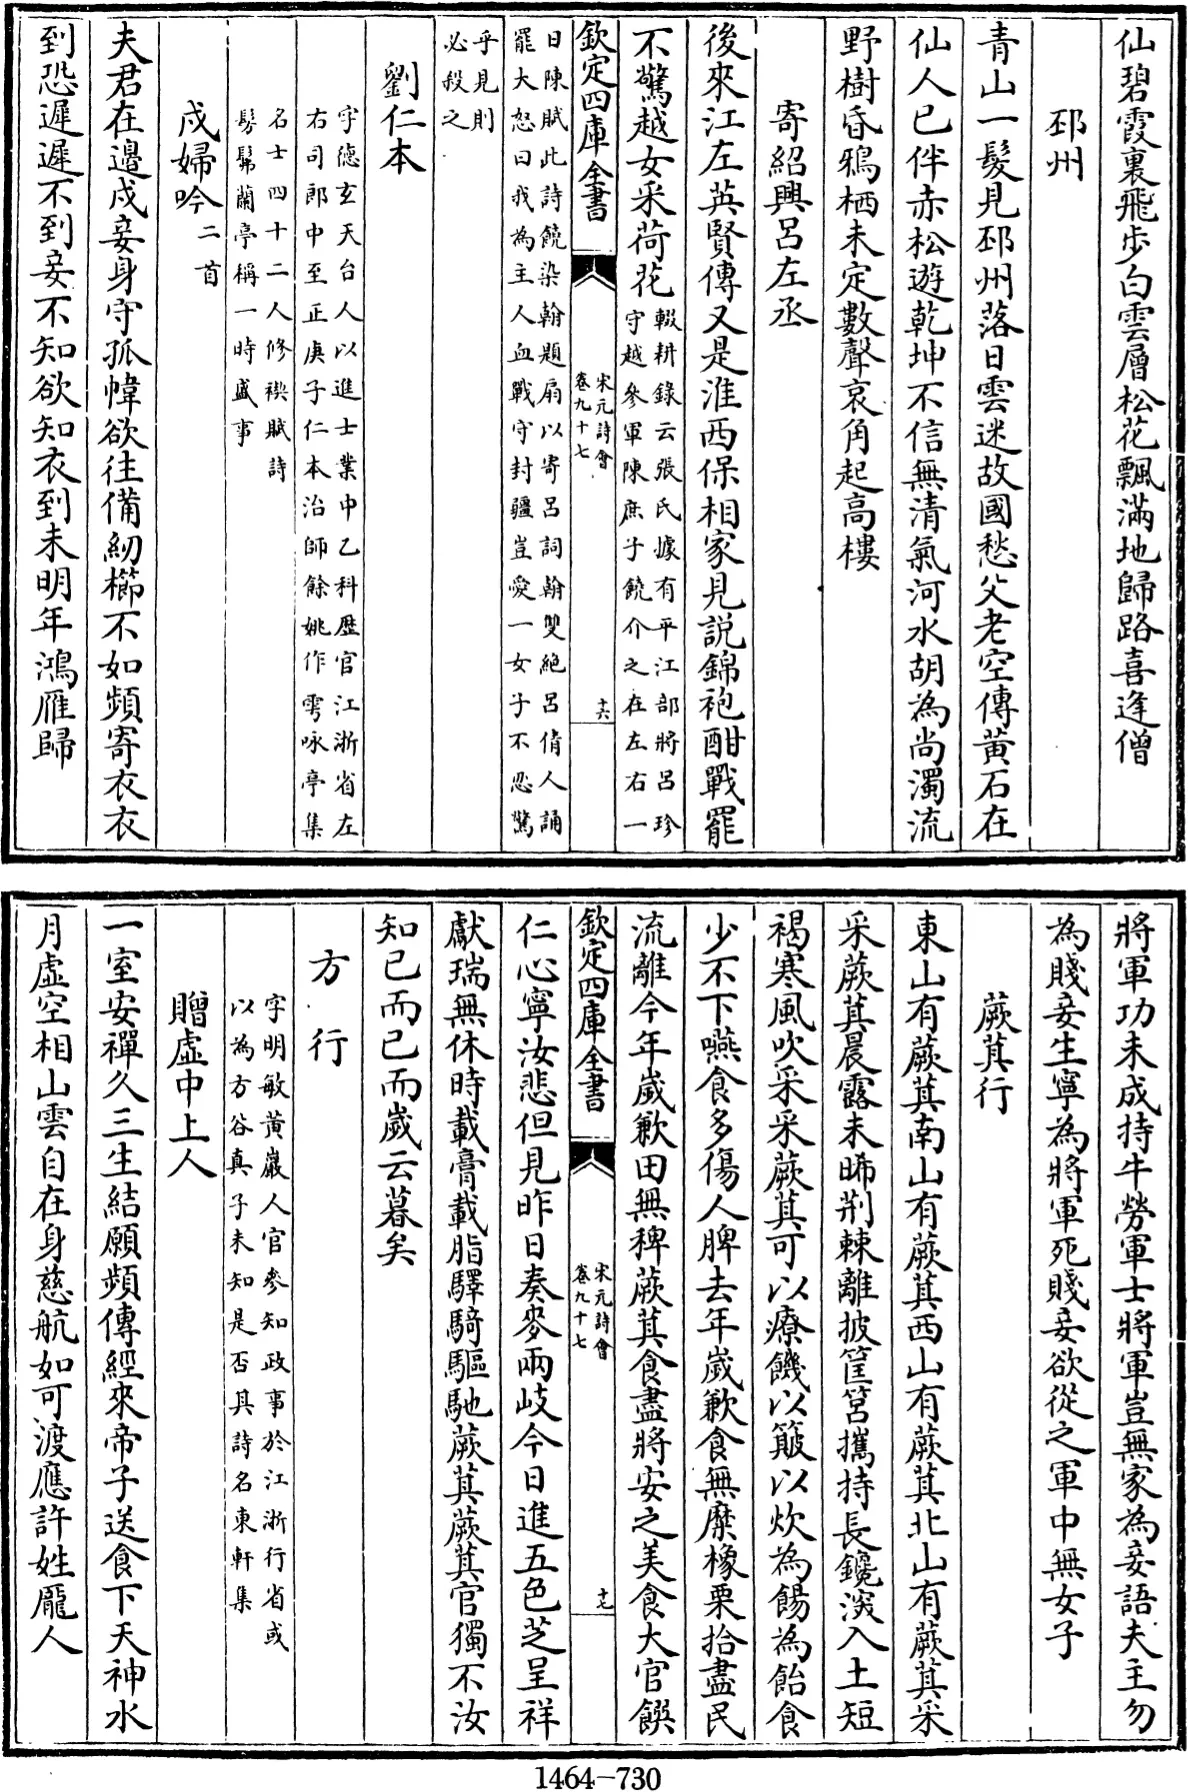 仙碧霞裏飛步白雲層松花飄滿地歸路喜逢僧
邳州
青山一髮見邳州落日雲迷故國愁父老空傳黄石在
仙人已伴赤松遊乾坤不信無清氣河水胡為尚濁流
野樹昏鴉栖未定數聲哀角起高樓
寄紹興呂左丞
後來江左英賢傳又是淮西保相家見説錦袍酣戰罷
不驚越女采荷花
輟耕錄云張氏據有平江部將呂珍
守越參軍陳庶子饒介之在左右一
欽定四庫全書
宋元詩會
卷九十七
十六
日陳賦此詩饒染翰題扇以寄呂詞翰雙絶呂倩人誦
罷大怒曰我為主人血戰守封疆豈愛一女子不忍驚
乎見則
必殺之
劉仁本
字德玄天台人以進士業中乙科歴官江浙省左
右司郎中至正庚子仁本治師餘姚作雩咏亭集
名士四十二人修禊賦詩
髣髴蘭亭稱一時盛事
戍婦吟二首
夫君在邊戍妾身守孤幃欲往備紉櫛不如頻寄衣衣
到恐遲遲不到妾不知欲知衣到未明年鴻雁歸
將軍功未成持牛勞軍士將軍豈無家為妾語夫主勿
為賤妾生寧為將軍死賤妾欲從之軍中無女子
蕨萁行
東山有蕨萁南山有蕨萁西山有蕨萁北山有蕨萁采
采蕨萁晨露未晞荆棘離披筐筥攜持長鑱深入土短
褐寒風吹采采蕨萁可以療饑以簸以炊為餳為飴食
少不下嚥食多傷人脾去年嵗歉食無糜橡栗拾盡民
流離今年嵗歉田無稗蕨萁食盡將安之美食大官饌
欽定四庫全書
宋元詩會
卷九十七
十七
仁心寧汝悲但見昨日奏麥兩岐今日進五色芝呈祥
獻瑞無休時載膏載脂驛騎驅馳蕨萁蕨萁官獨不汝
知已而已而嵗云暮矣
方行
字明敏黄巖人官參知政事於江浙行省或
以為方谷真子未知是否具詩名東軒集
贈虛中上人
一室安禪久三生結願頻傳經來帝子送食下天神水
月虛空相山雲自在身慈航如可渡應許姓龎人
1464-730